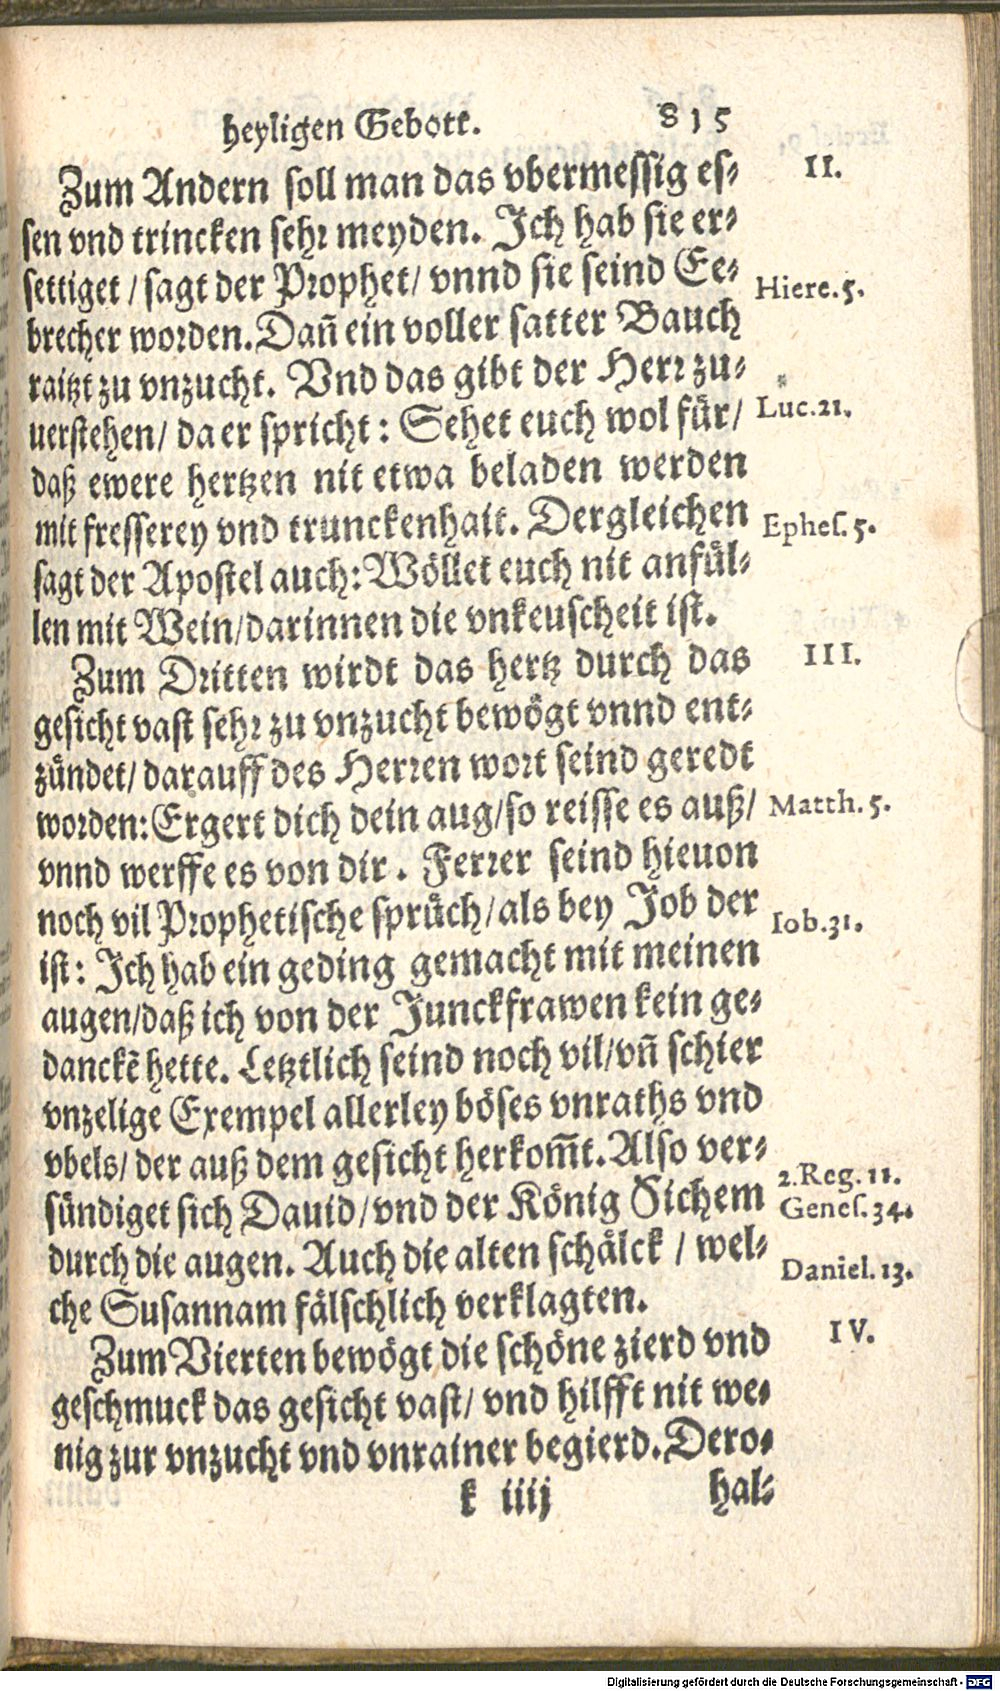 heyligen Gebott. 815
Zum Andern soll man das vbermessig es- II.
sen vnd trincken sehr meyden. Ich hab sie er-
settiget / sagt der Prophet / vnnd sie seind Ee- Hiere. 5.
brecher worden. Dañ ein voller satter Bauch
raitzt zu vnzucht. Vnd das gibt der Herr zu-
uerstehen / da er spricht : Sehet euch wol für / Luc. 21.
daß ewere hertzen nit etwa beladen werden
mit fresserey vnd trunckenhait. Dergleichen Ephes. 5.
sagt der Apostel auch : Wöllet euch nit anfül-
len mit Wein / darinnen die vnkeuscheit ist.
Zum Dritten wirdt das hertz durch das III.
gesicht vast sehr zu vnzucht bewögt vnnd ent-
zündet / darauff des Herren wort seind geredt
worden: Ergert dich dein aug / so reisse es auß / Matth. 5.
vnnd werffe es von dir. Ferrer seind hieuon
noch vil Prophetische sprüch / als bey Job der Iob. 31.
ist : Ich hab ein geding gemacht mit meinen
augen / daß ich von der Junckfrawen kein ge-
danckē hette. Letztlich seind noch vil / vñ schier
vnzelige Exempel allerley böses vnraths vnd
vbels / der auß dem gesicht herkom̃t. Also ver- 2. Reg. 11.
sündiget sich Dauid / vnd der König Sichem Genes. 34.
durch die augen. Auch die alten schälck / wel- Daniel. 13.
che Susannam fälschlich verklagten.
Zum Vierten bewögt die schöne zierd vnd IV.
geschmuck das gesicht vast / vnd hilfft nit we-
nig zur vnzucht vnd vnrainer begierd. Dero-
k iiij hal-
Digitalisierung gefördert durch die Deutsche Forschungsgemeinschaft - DFG